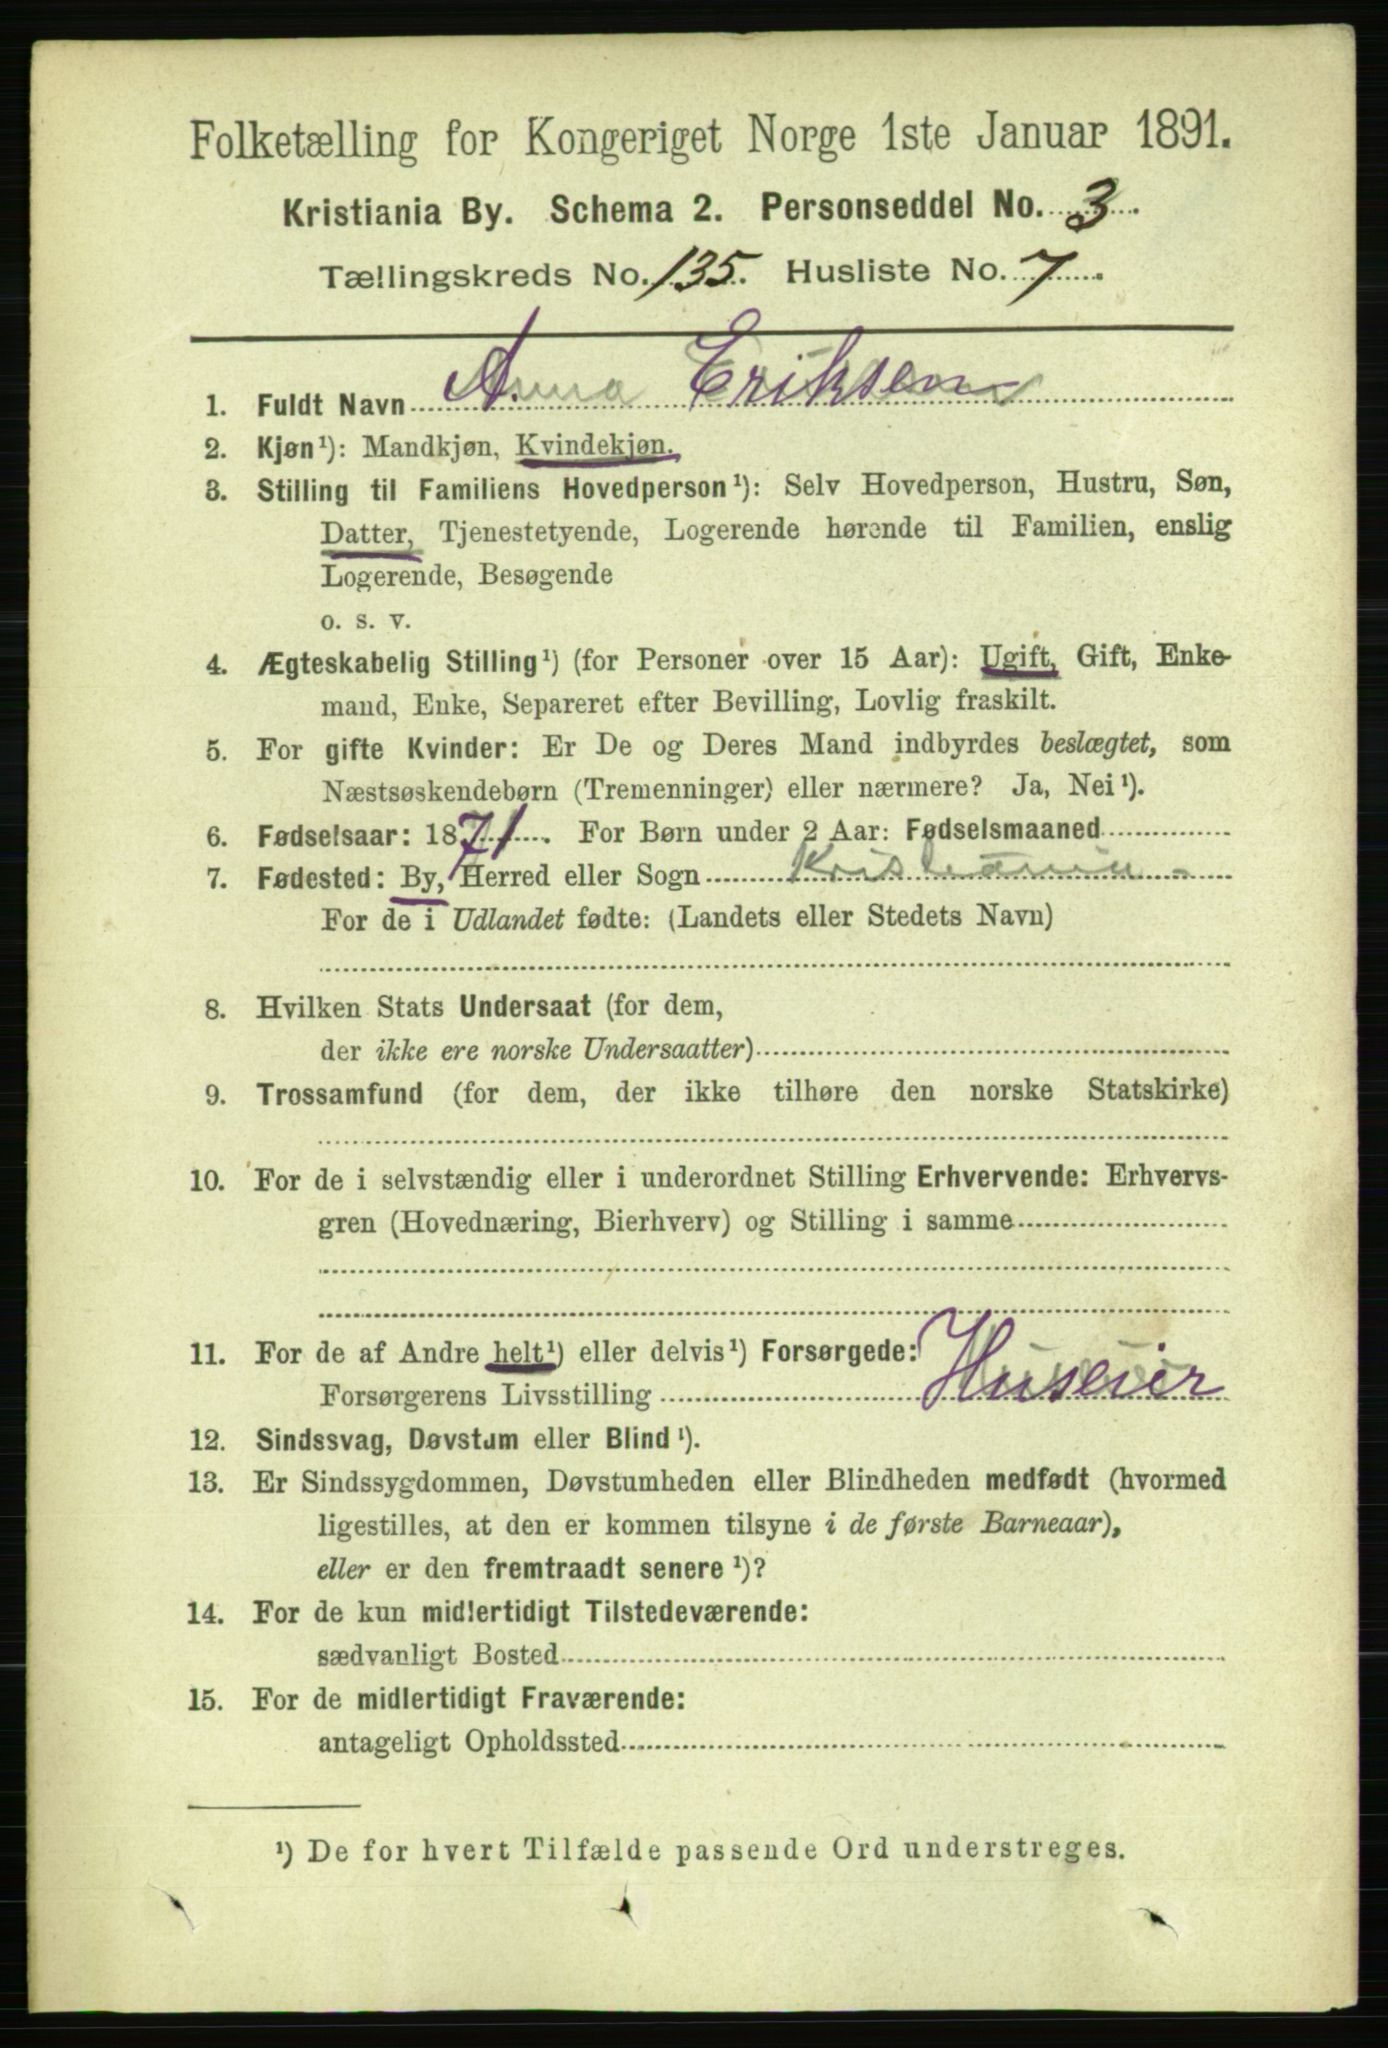 Folketælling for Kongeriget Norge 1ste Januar 1891.
Kristiania By. Schema 2. Personseddel No. 3.
Tællingskreds No. 135. Husliste No. 7.
1. Fuldt Navn Anna Eriksen
2. Kjøn¹): Mandkjøn, Kvindekjøn.
3. Stilling til Familiens Hovedperson¹): Selv Hovedperson, Hustru, Søn,
Datter, Tjenestetyende, Logerende hørende til Familien, enslig
Logerende, Besøgende
o. s. v.
4. Ægteskabelig Stilling¹) (for Personer over 15 Aar): Ugift, Gift, Enke-
mand, Enke, Separeret efter Bevilling, Lovlig fraskilt.
5. For gifte Kvinder: Er De og Deres Mand indbyrdes beslægtet, som
Næstsøskendebørn (Tremenninger) eller nærmere? Ja, Nei¹).
6. Fødselsaar: 1871. For Børn under 2 Aar: Fødselsmaaned
7. Fødested: By, Herred eller Sogn Kristiania
For de i Udlandet fødte: (Landets eller Stedets Navn)
8. Hvilken Stats Undersaat (for dem,
der ikke ere norske Undersaatter)
9. Trossamfund (for dem, der ikke tilhøre den norske Statskirke)
10. For de i selvstændig eller i underordnet Stilling Erhvervende: Erhvervs-
gren (Hovednæring, Bierhverv) og Stilling i samme
11. For de af Andre helt¹) eller delvis¹) Forsørgede:
Forsørgerens Livsstilling Huseier
12. Sindssvag, Døvstum eller Blind¹).
13. Er Sindssygdommen, Døvstumheden eller Blindheden medfødt (hvormed
ligestilles, at den er kommen tilsyne i de første Barneaar),
eller er den fremtraadt senere¹)?
14. For de kun midlertidigt Tilstedeværende:
sædvanligt Bosted
15. For de midlertidigt Fraværende:
antageligt Opholdssted
¹) De for hvert Tilfælde passende Ord understreges.